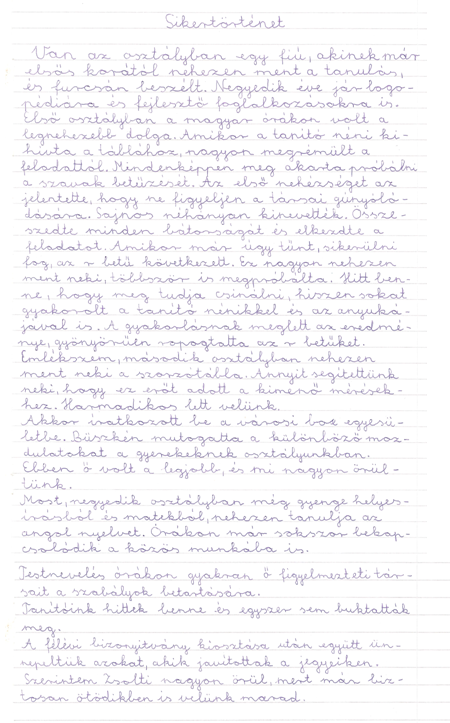 Sikertörténet
Van az osztályban egy fiú, akinek már
elsős korától nehezen ment a tanulás,
és furcsán beszélt. Negyedik éve jár logo-
pédiára és fejlesztő foglalkozásokra is.
Első osztályban a magyar órákon volt a
legnehezebb dolga. Amikor a tanító néni ki-
hívta a táblához, nagyon megrémült a
feladattól. Mindenképpen meg akarta próbálni
a szavak betűzését. Az első nehézséget az
jelentette, hogy ne figyeljen a társai gúnyoló-
dására. Sajnos néhányan kinevették. Össze-
szedte minden bátorságát és elkezdte a
feladatot. Amikor már úgy tűnt, sikerülni
fog, az r betű következett. Ez nagyon nehezen
ment neki, többször is megpróbálta. Hitt ben-
ne, hogy meg tudja csinálni, hiszen sokat
gyakorolt a tanító nénikkel és az anyuká-
jával is. A gyakorlásnak meglett az eredmé-
nye, gyönyörűen ropogtatta az r betűket.
Emlékszem, második osztályban nehezen
ment neki a szorzótábla. Annyit segítettünk
neki, hogy ez erőt adott a kimenő mérések-
hez. Harmadikos lett velünk.
Akkor iratkozott be a városi box egyesü-
letbe. Büszkén mutogatta a különböző moz-
dulatokat a gyerekeknek osztályunkban.
Ebben ő volt a legjobb, és mi nagyon örül-
tünk.
Most, negyedik osztályban még gyenge helyes-
írásból és matekból, nehezen tanulja az
angol nyelvet. Órákon már sokszor bekap-
csolódik a közös munkába is.
Testnevelés órákon gyakran ő figyelmezteti tár-
sait a szabályok betartására.
Tanítóink hittek benne és egyszer sem buktatták
meg.
A félévi bizonyítvány kiosztása után együtt ün-
nepeltük azokat, akik javítottak a jegyeiken.
Szerintem Zsolti nagyon örül, mert már biz-
tosan ötödikben is velünk marad.